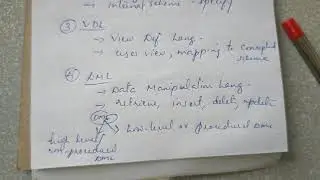 → internal schema - specify
③ VDL
→ View Def Lang.
→ user view, mapping to Conceptual
schema
④ DML
→ Data Manipulation Lang.
→ retrieve, insert, delete, update
DML
Low-level or procedural DML
high level/
non procedural
DML